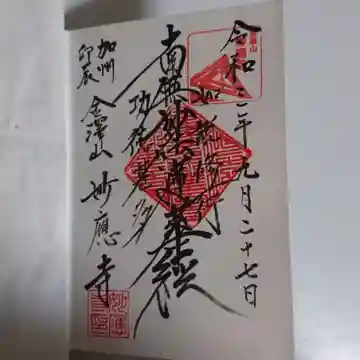 令和二年九月二十七日
南無妙法蓮華経
功徳甚多
加州
卯辰
金澤山 妙應寺